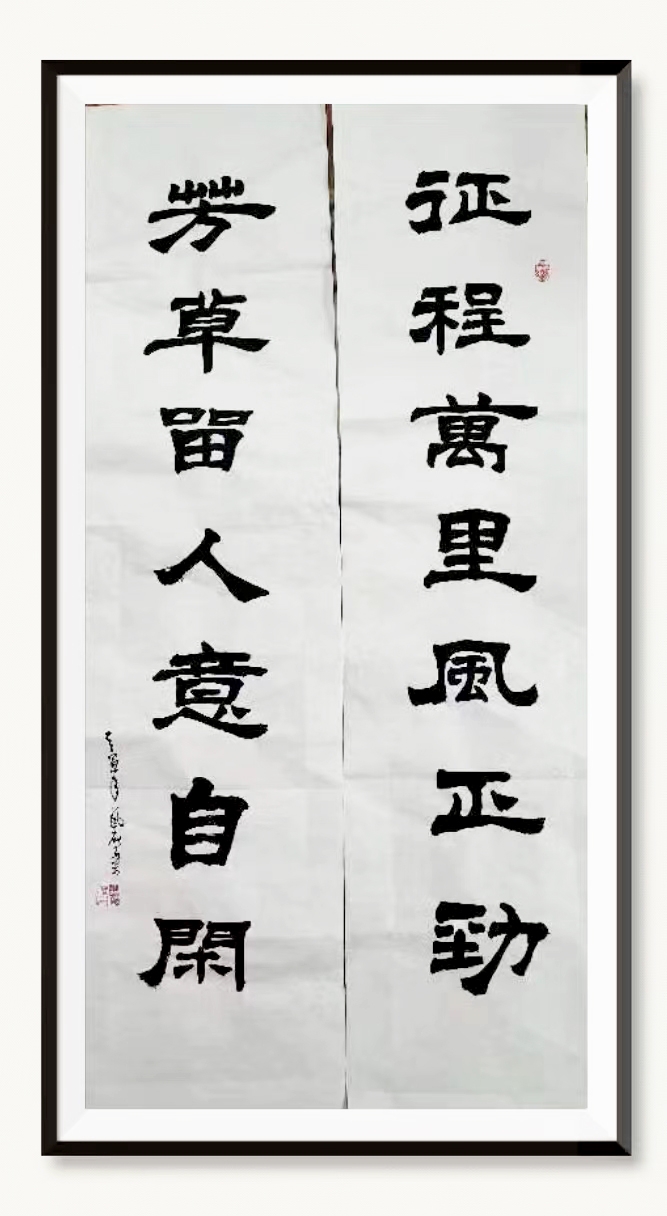 征程萬里風正勁
芳草留人意自閑